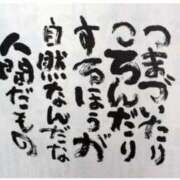 つまづいたり
ころんだり
するほうが
自然なんだな
人間だもの